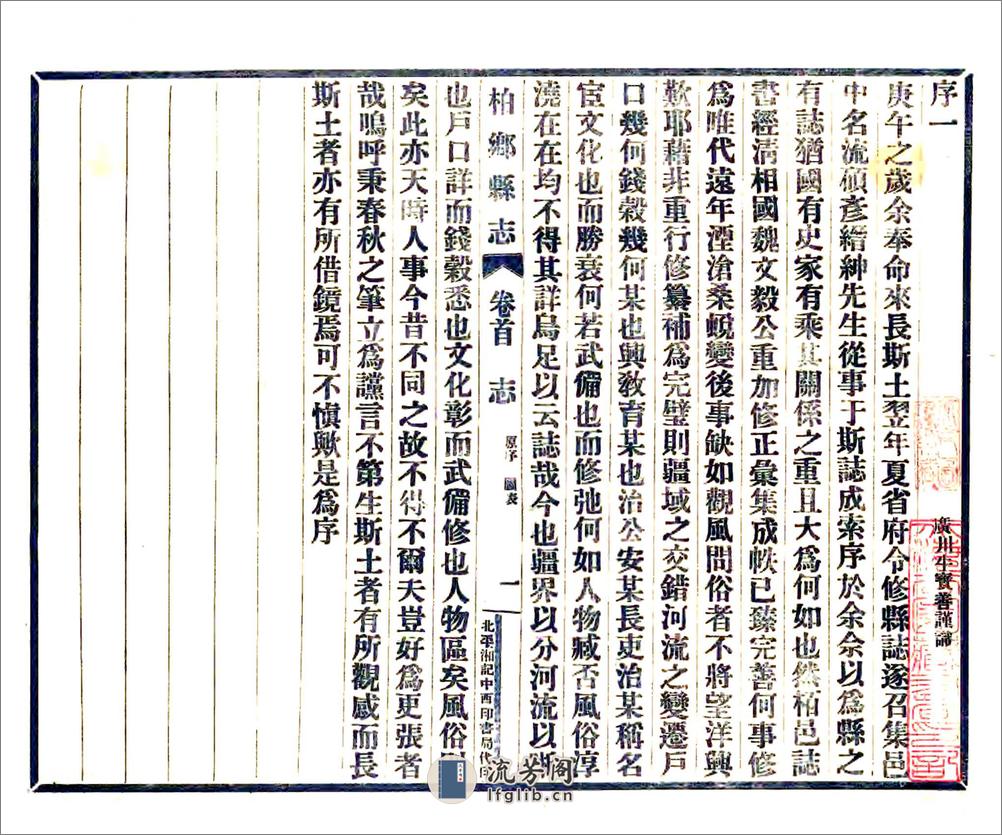 序一
廣川牛寶善謹
庚午之歲余奉命來長斯土翌年夏省府令修縣誌遂召集邑
中名流碩彥縉紳先生從事于斯誌成索序於余余以為縣之
有誌猶國有史家有乘其關係之重且大為何如也然柏邑誌
書經淸相國魏文毅公重加修正彙集成帙已臻完善何事修
為唯代遠年湮滄桑蛻變後事缺如觀風問俗者不將望洋興
歎耶藉非重行修纂補為完璧則疆域之交錯河流之變遷戶
口幾何錢榖幾何某也興敎育某也治公安某長吏治某稱名
宦文化也而勝衰何若武備也而修弛何如人物臧否風俗淳
澆在在均不得其詳烏足以云誌哉今也疆界以分河流以
柏鄕縣志
卷首
志
原序 圖表
一
北平湘記中西印書局代印
也戶口詳而錢榖悉也文化彰而武備修也人物區矣風俗
矣此亦天時人事今昔不同之故不得不爾夫豈好為更張者
哉嗚呼秉春秋之筆立為讜言不第生斯土者有所觀感而長
斯土者亦有所借鏡焉可不愼歟是為序
流芳閣
lfglib.cn